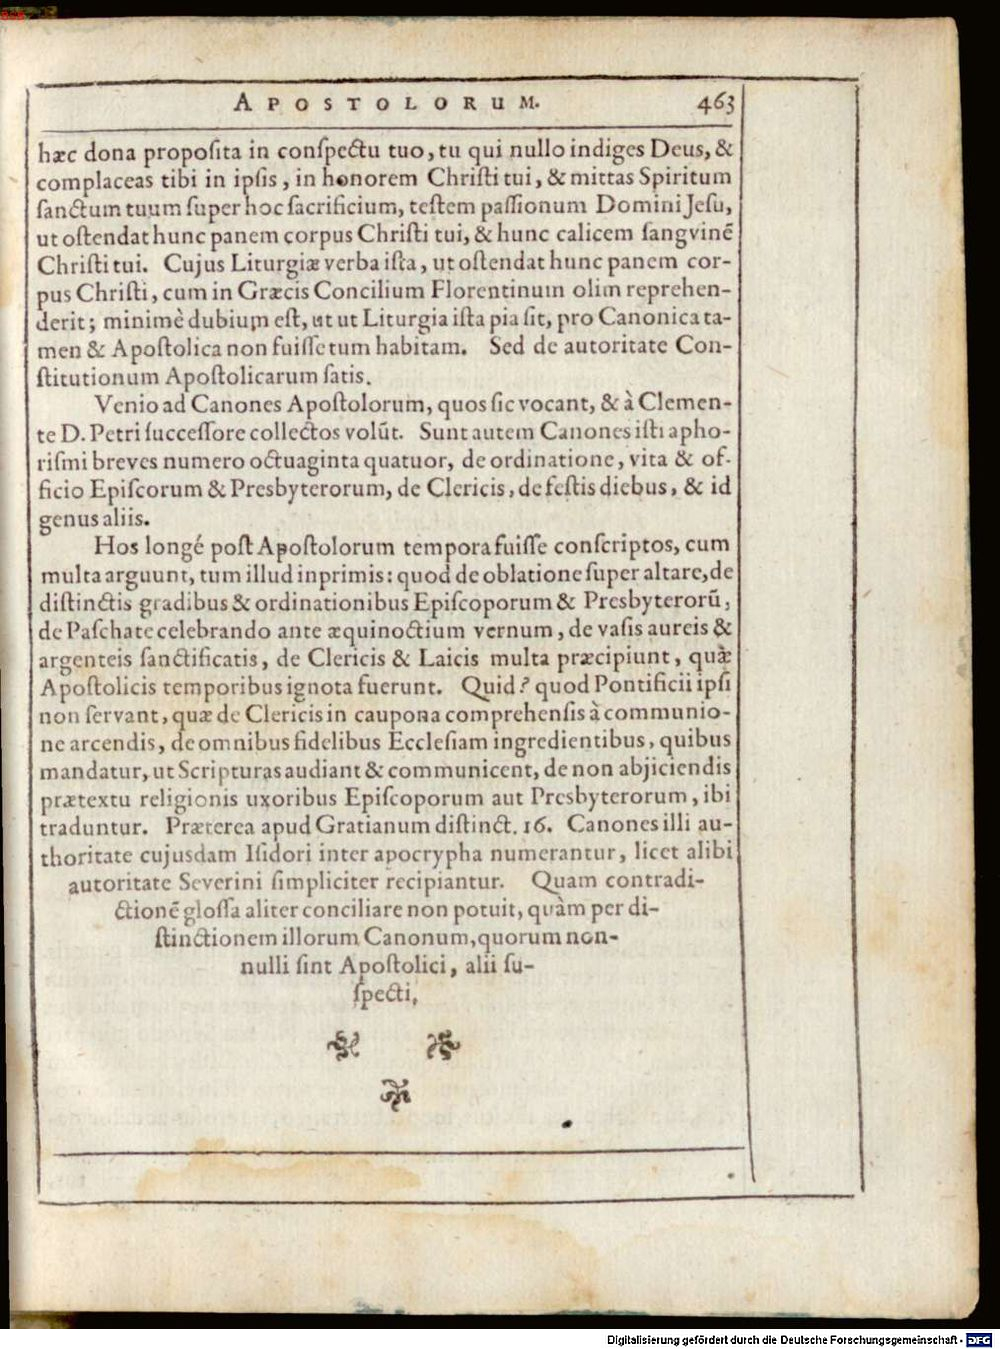 APOSTOLORUM. 463
hæc dona propoſita in conſpectu tuo, tu qui nullo indiges Deus, &
complaceas tibi in ipſis, in honorem Chriſti tui, & mittas Spiritum
ſanctum tuum ſuper hoc ſacrificium, teſtem paſſionum Domini Jeſu,
ut oſtendat hunc panem corpus Chriſti tui, & hunc calicem ſangvinē
Chriſti tui. Cujus Liturgiæ verba iſta, ut oſtendat hunc panem cor-
pus Chriſti, cum in Græcis Concilium Florentinum olim reprehen-
derit; minimè dubium eſt, ut ut Liturgia iſta pia ſit, pro Canonica ta-
men & Apoſtolica non fuiſſe tum habitam. Sed de autoritate Con-
ſtitutionum Apoſtolicarum ſatis.
Venio ad Canones Apoſtolorum, quos ſic vocant, & à Clemen-
te D. Petri ſucceſſore collectos volūt. Sunt autem Canones iſti apho-
riſmi breves numero octuaginta quatuor, de ordinatione, vita & of-
ficio Epiſcorum & Presbyterorum, de Clericis, de feſtis diebus, & id
genus aliis.
Hos longé poſt Apoſtolorum tempora fuiſſe conſcriptos, cum
multa arguunt, tum illud inprimis: quod de oblatione ſuper altare, de
diſtinctis gradibus & ordinationibus Epiſcoporum & Presbyterorū,
de Paſchate celebrando ante æquinoctium vernum, de vaſis aureis &
argenteis ſanctificatis, de Clericis & Laicis multa præcipiunt, quæ
Apoſtolicis temporibus ignota fuerunt. Quid? quod Pontificii ipſi
non ſervant, quæ de Clericis in caupona comprehenſis à communio-
ne arcendis, de omnibus fidelibus Eccleſiam ingredientibus, quibus
mandatur, ut Scripturas audiant & communicent, de non abjiciendis
prætextu religionis uxoribus Epiſcoporum aut Presbyterorum, ibi
traduntur. Præterea apud Gratianum diſtinct. 16. Canones illi au-
thoritate cujusdam Iſidori inter apocrypha numerantur, licet alibi
autoritate Severini ſimpliciter recipiantur. Quam contradi-
ctionē gloſſa aliter conciliare non potuit, quàm per di-
ſtinctionem illorum Canonum, quorum non-
nulli ſint Apoſtolici, alii ſu-
ſpecti,
Digitalisierung gefördert durch die Deutsche Forschungsgemeinschaft - DFG